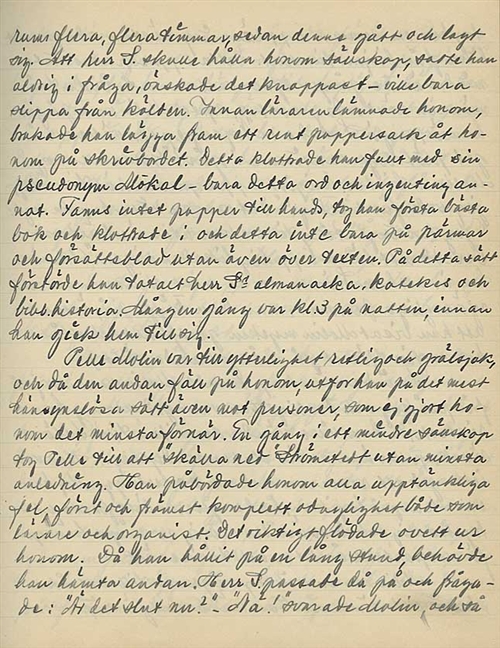 rums flera, flera timmar, sedan denne gått och lagt
sig. Att herr S. skulle hålla honom sällskap, satte han
aldrig i fråga, önskade det knappast – ville bara
slippa från kölden. Innan läraren lämnade honom,
brukade han lägga fram ett rent pappersark åt ho-
nom på skrivbordet. Detta klottrade han fullt med sin
pseudonym Mökal – bara detta ord och ingenting an-
nat. Fanns intet papper till hands, tog han första bästa
bok och klottrade i och detta inte bara på pärmar
och försättsblad utan även över texten. På detta sätt
förstörde han totalt herr S:s almanacka, katekes och
bibl. historia. Mången gång var kl. 3 på natten, innan
han gick hem till sig.
Pelle Molin var till ytterlighet retlig och grälsjuk,
och då den andan föll på honom, utfor han på det mest
hänsynslösa sätt även mot personer, som ej gjort ho-
nom det minsta förnär. En gång i ett mindre sällskap
tog Pelle till att skälla ned Strömstedt utan minsta
anledning. Han påbördade honom alla upptänkliga
fel, först och främst komplett oduglighet både som
lärare och organist. Det riktigt flödade ovett ur
honom. Då han hållit på en lång stund, behövde
han hämta andan. Herr S. passade då på och fråga-
de: "Är det slut nu?" – "Nä!" svarade Molin, och så